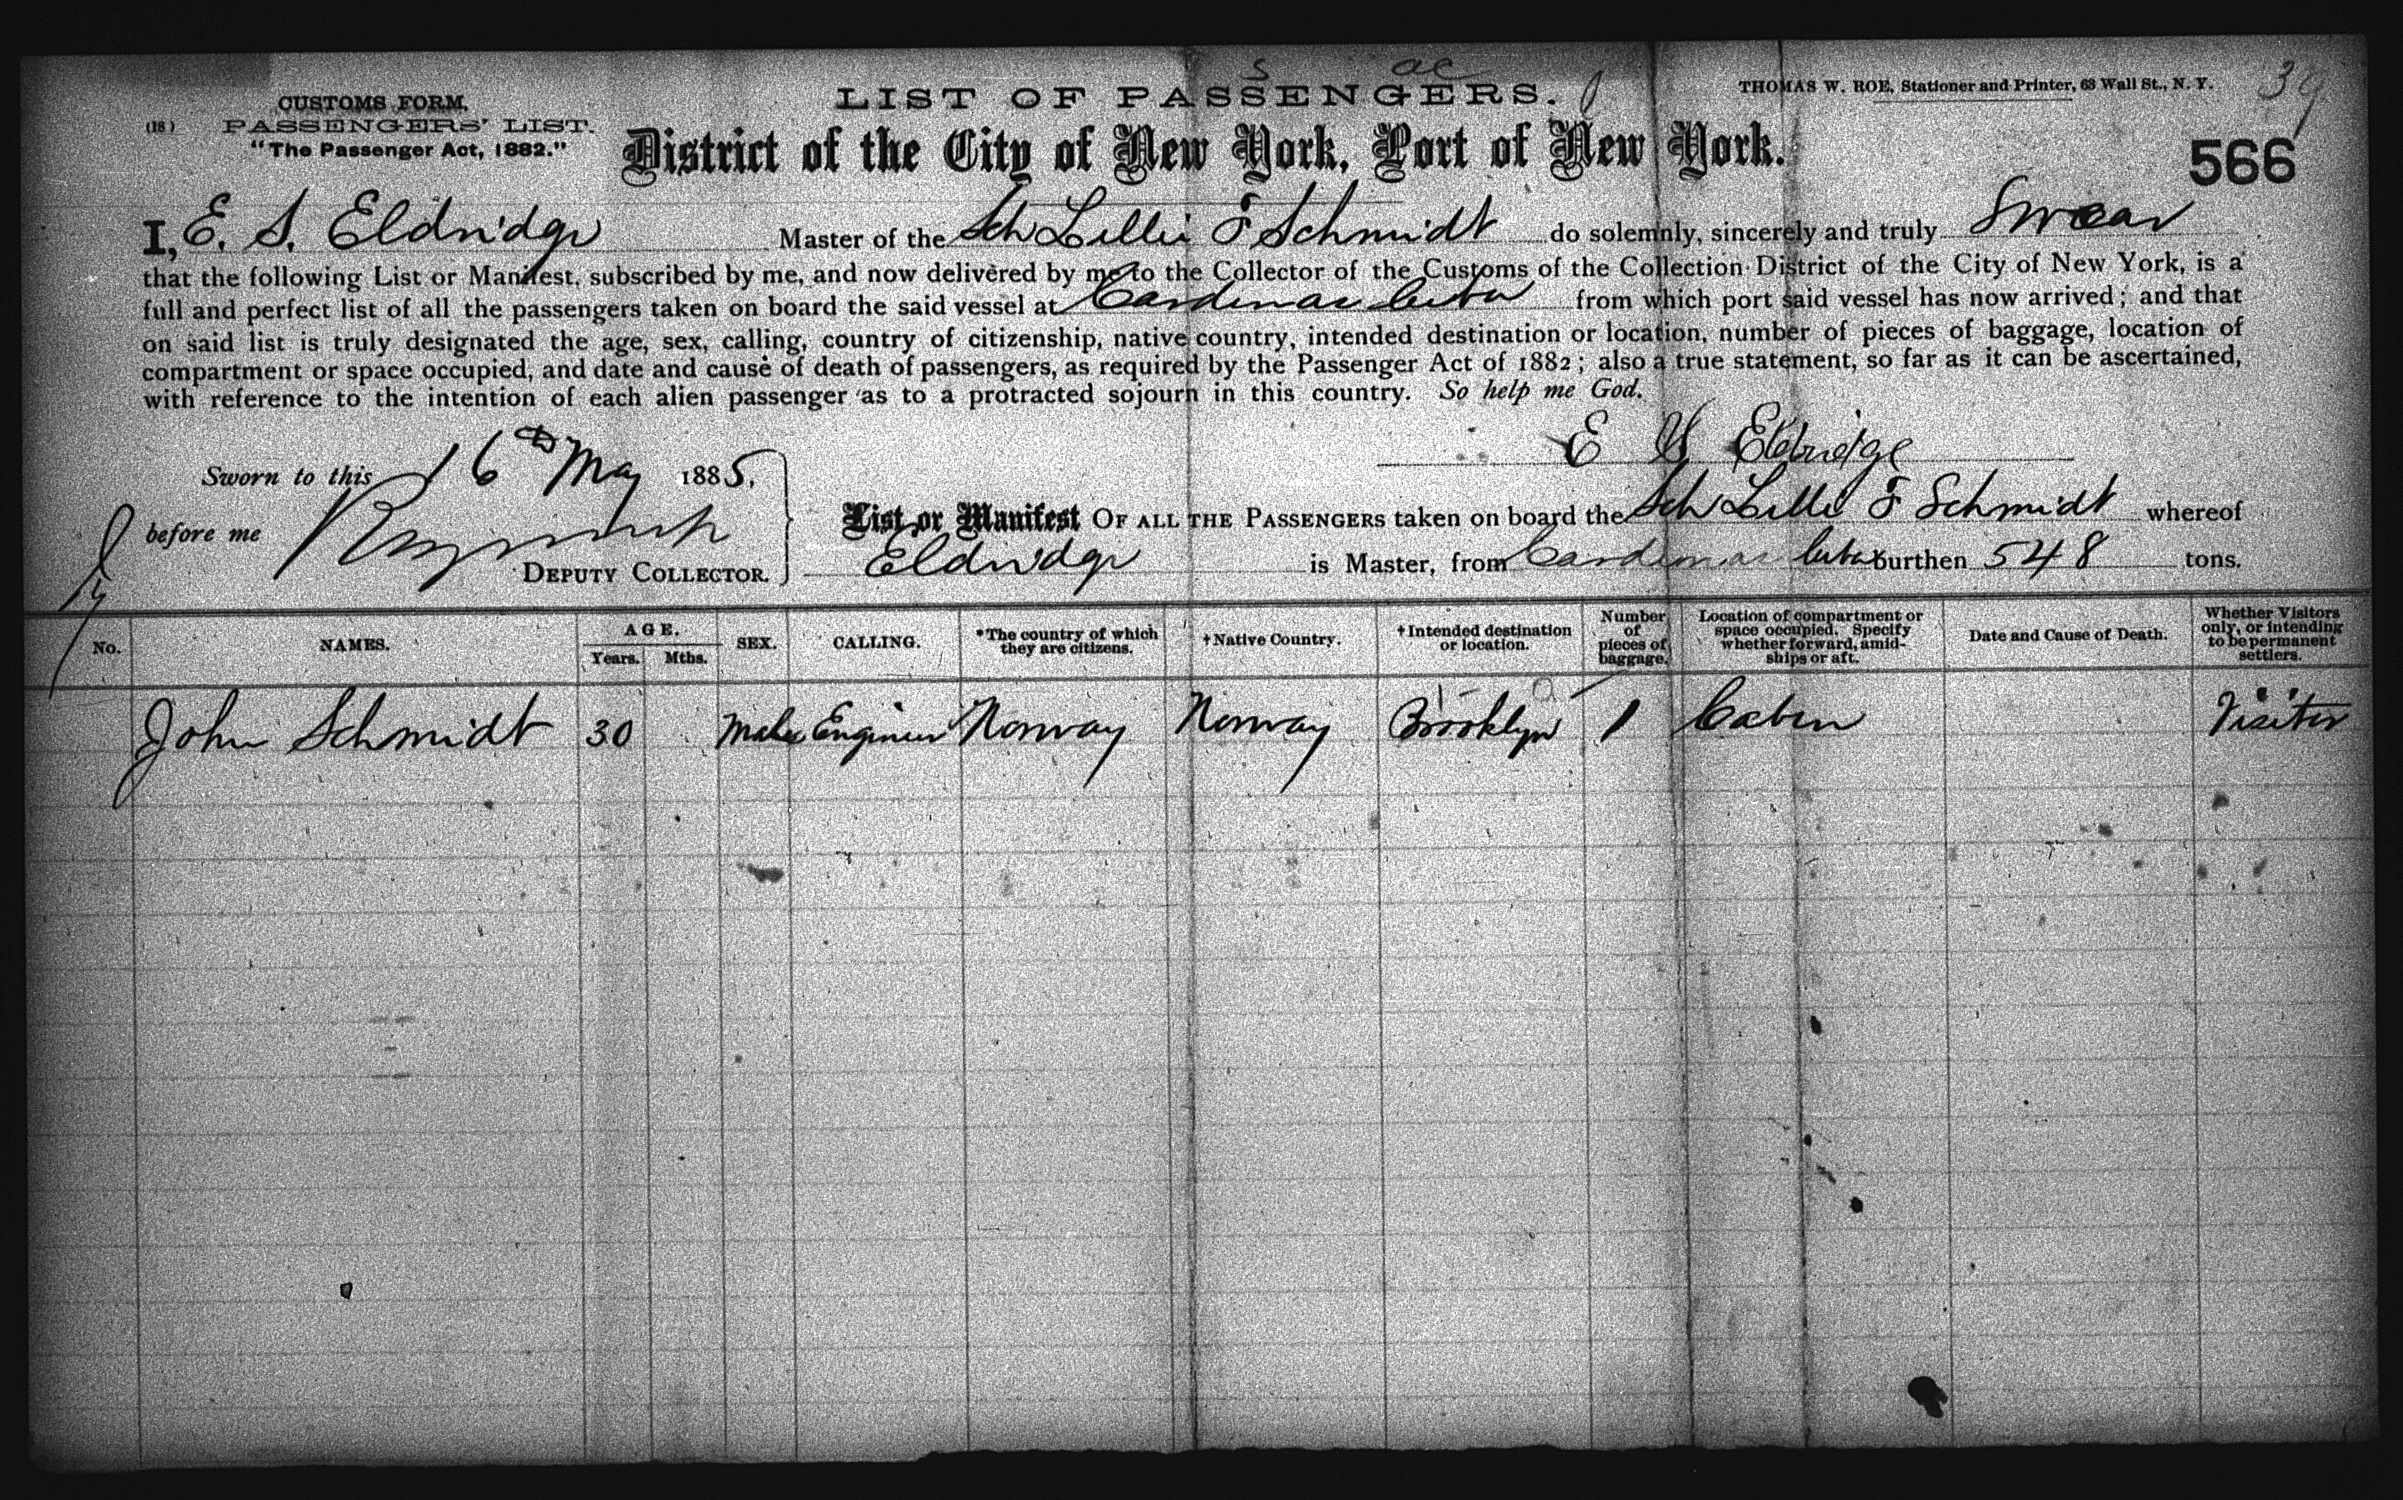 S ac
CUSTOMS FORM.
(18) PASSENGERS' LIST.
"The Passenger Act, 1882."
LIST OF PASSENGERS.
THOMAS W. ROE, Stationer and Printer, 63 Wall St., N. Y.
39
District of the City of New York, Port of New York.
566
I, E. S. Eldridge Master of the Sch Lillie F Schmidt do solemnly, sincerely and truly Swear
that the following List or Manifest, subscribed by me, and now delivered by me to the Collector of the Customs of the Collection District of the City of New York, is a
full and perfect list of all the passengers taken on board the said vessel at Cardenas Cuba from which port said vessel has now arrived; and that
on said list is truly designated the age, sex, calling, country of citizenship, native country, intended destination or location, number of pieces of baggage, location of
compartment or space occupied, and date and cause of death of passengers, as required by the Passenger Act of 1882; also a true statement, so far as it can be ascertained,
with reference to the intention of each alien passenger as to a protracted sojourn in this country. So help me God.
E S Eldridge
Sworn to this 16th May 1885,
before me
DEPUTY COLLECTOR.
List or Manifest OF ALL THE PASSENGERS taken on board the Sch Lillie F Schmidt whereof
Eldridge is Master, from Cardenas Cuba burthen 548 tons.
No. NAMES. AGE. Years. Mths. SEX. CALLING. *The country of which they are citizens. †Native Country. †Intended destination or location. Number of pieces of baggage. Location of compartment or space occupied. Specify whether forward, amidships or aft. Date and Cause of Death. Whether Visitors only, or intending to be permanent settlers.
John Schmidt 30 Male Engineer Norway Norway Brooklyn 1 Cabin Visitor